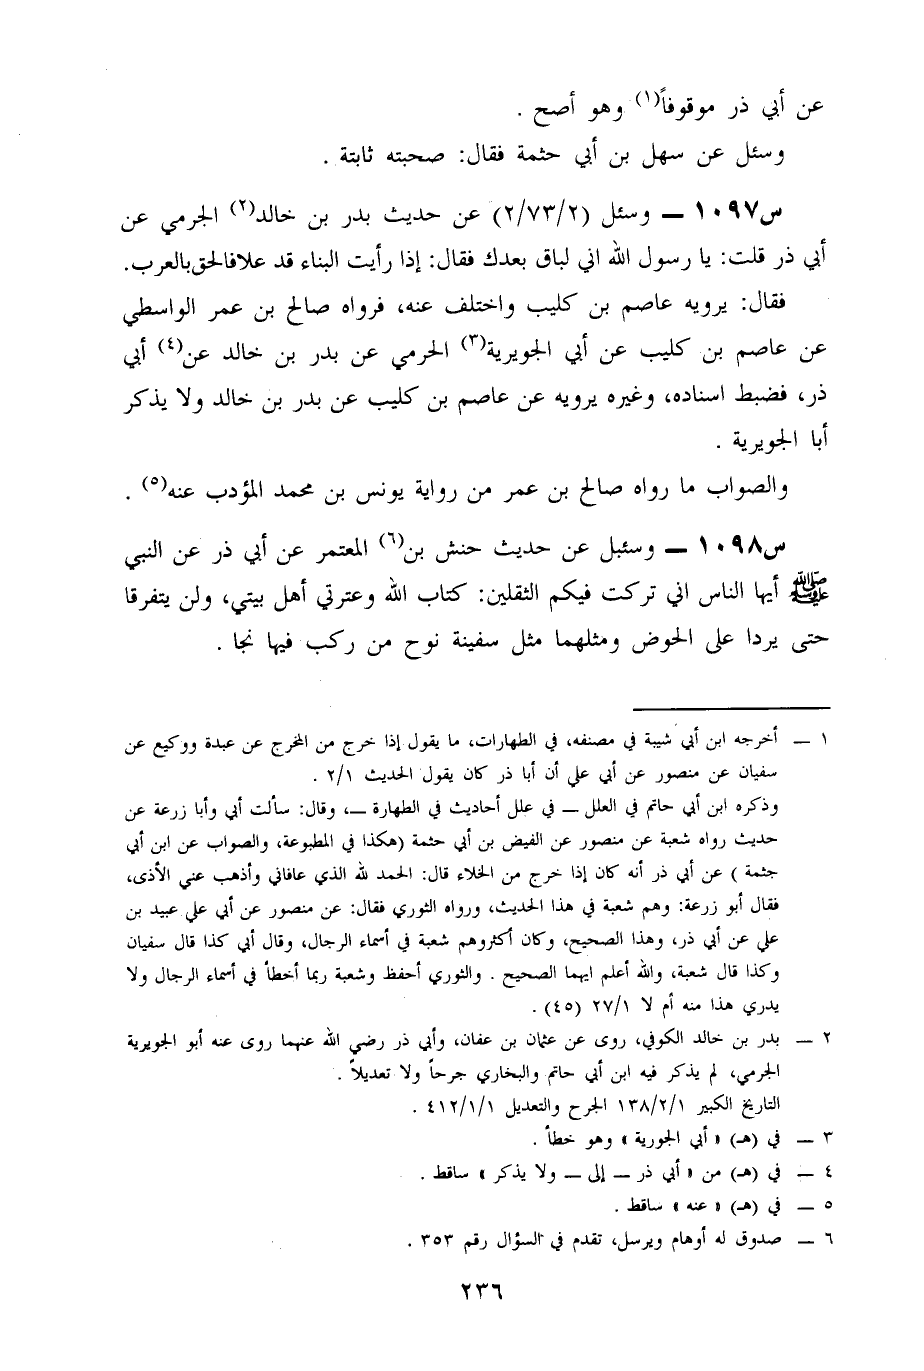 عن أبي ذر موقوفاً(١) وهو أصح .
وسئل عن سهل بن أبي حثمة فقال: صحبته ثابتة .
س١٠٩٧ ــ وسئل (٢/٧٣/٢) عن حديث بدر بن خالد(٢) الجرمي عن
أبي ذر قلت: يا رسول الله اني لباق بعدك فقال: إذا رأيت البناء قد علا فالحق بالعرب.
فقال: يرويه عاصم بن كليب واختلف عنه، فرواه صالح بن عمر الواسطي
عن عاصم بن كليب عن أبي الجويرية(٣) الحرمي عن بدر بن خالد عن(٤) أبي
ذر، فضبط اسناده، وغيره يرويه عن عاصم بن كليب عن بدر بن خالد ولا يذكر
أبا الجويرية .
والصواب ما رواه صالح بن عمر من رواية يونس بن محمد المؤدب عنه(٥) .
س١٠٩٨ ــ وسئبل عن حديث حنش بن(٦) المعتمر عن أبي ذر عن النبي
ﷺ أيها الناس اني تركت فيكم الثقلين: كتاب الله وعترتي أهل بيتي، ولن يتفرقا
حتى يردا على الحوض ومثلهما مثل سفينة نوح من ركب فيها نجا .
١ ــ أخرجه ابن أبي شيبة في مصنفه، في الطهارات، ما يقول إذا خرج من المخرج عن عبدة ووكيع عن
سفيان عن منصور عن أبي علي أن أبا ذر كان يقول الحديث ٢/١ .
وذكره ابن أبي حاتم في العلل ــ في علل أحاديث في الطهارة ــ، وقال: سألت أبي وأبا زرعة عن
حديث رواه شعبة عن منصور عن الفيض بن أبي حثمة (هكذا في المطبوعة، والصواب عن ابن أبي
جثمة ) عن أبي ذر أنه كان إذا خرج من الخلاء قال: الحمد لله الذي عافاني وأذهب عني الأذى،
فقال أبو زرعة: وهم شعبة في هذا الحديث، ورواه الثوري فقال: عن منصور عن أبي علي عبيد بن
علي عن أبي ذر، وهذا الصحيح، وكان أكثروهم شعبة في أسماء الرجال، وقال أبي كذا قال سفيان
وكذا قال شعبة، والله أعلم ايهما الصحيح . والثوري أحفظ وشعبة ربما أخطأ في أسماء الرجال ولا
يدري هذا منه أم لا ٢٧/١ (٤٥) .
٢ ــ بدر بن خالد الكوفي، روى عن عثمان بن عفان، وأبي ذر رضي الله عنهما روى عنه أبو الجويرية
الجرمي، لم يذكر فيه ابن أبي حاتم والبخاري جرحاً ولا تعديلاً .
التاريخ الكبير ١٣٨/٢/١ الجرح والتعديل ٤١٢/١/١ .
٣ ــ في (هـ) « أبي الجورية » وهو خطأ .
٤ ــ في (هـ) من « أبي ذر ــ إلى ــ ولا يذكر » ساقط .
٥ ــ في (هـ) « عنه » ساقط .
٦ ــ صدوق له أوهام ويرسل، تقدم في السؤال رقم ٣٥٣ .
٢٣٦